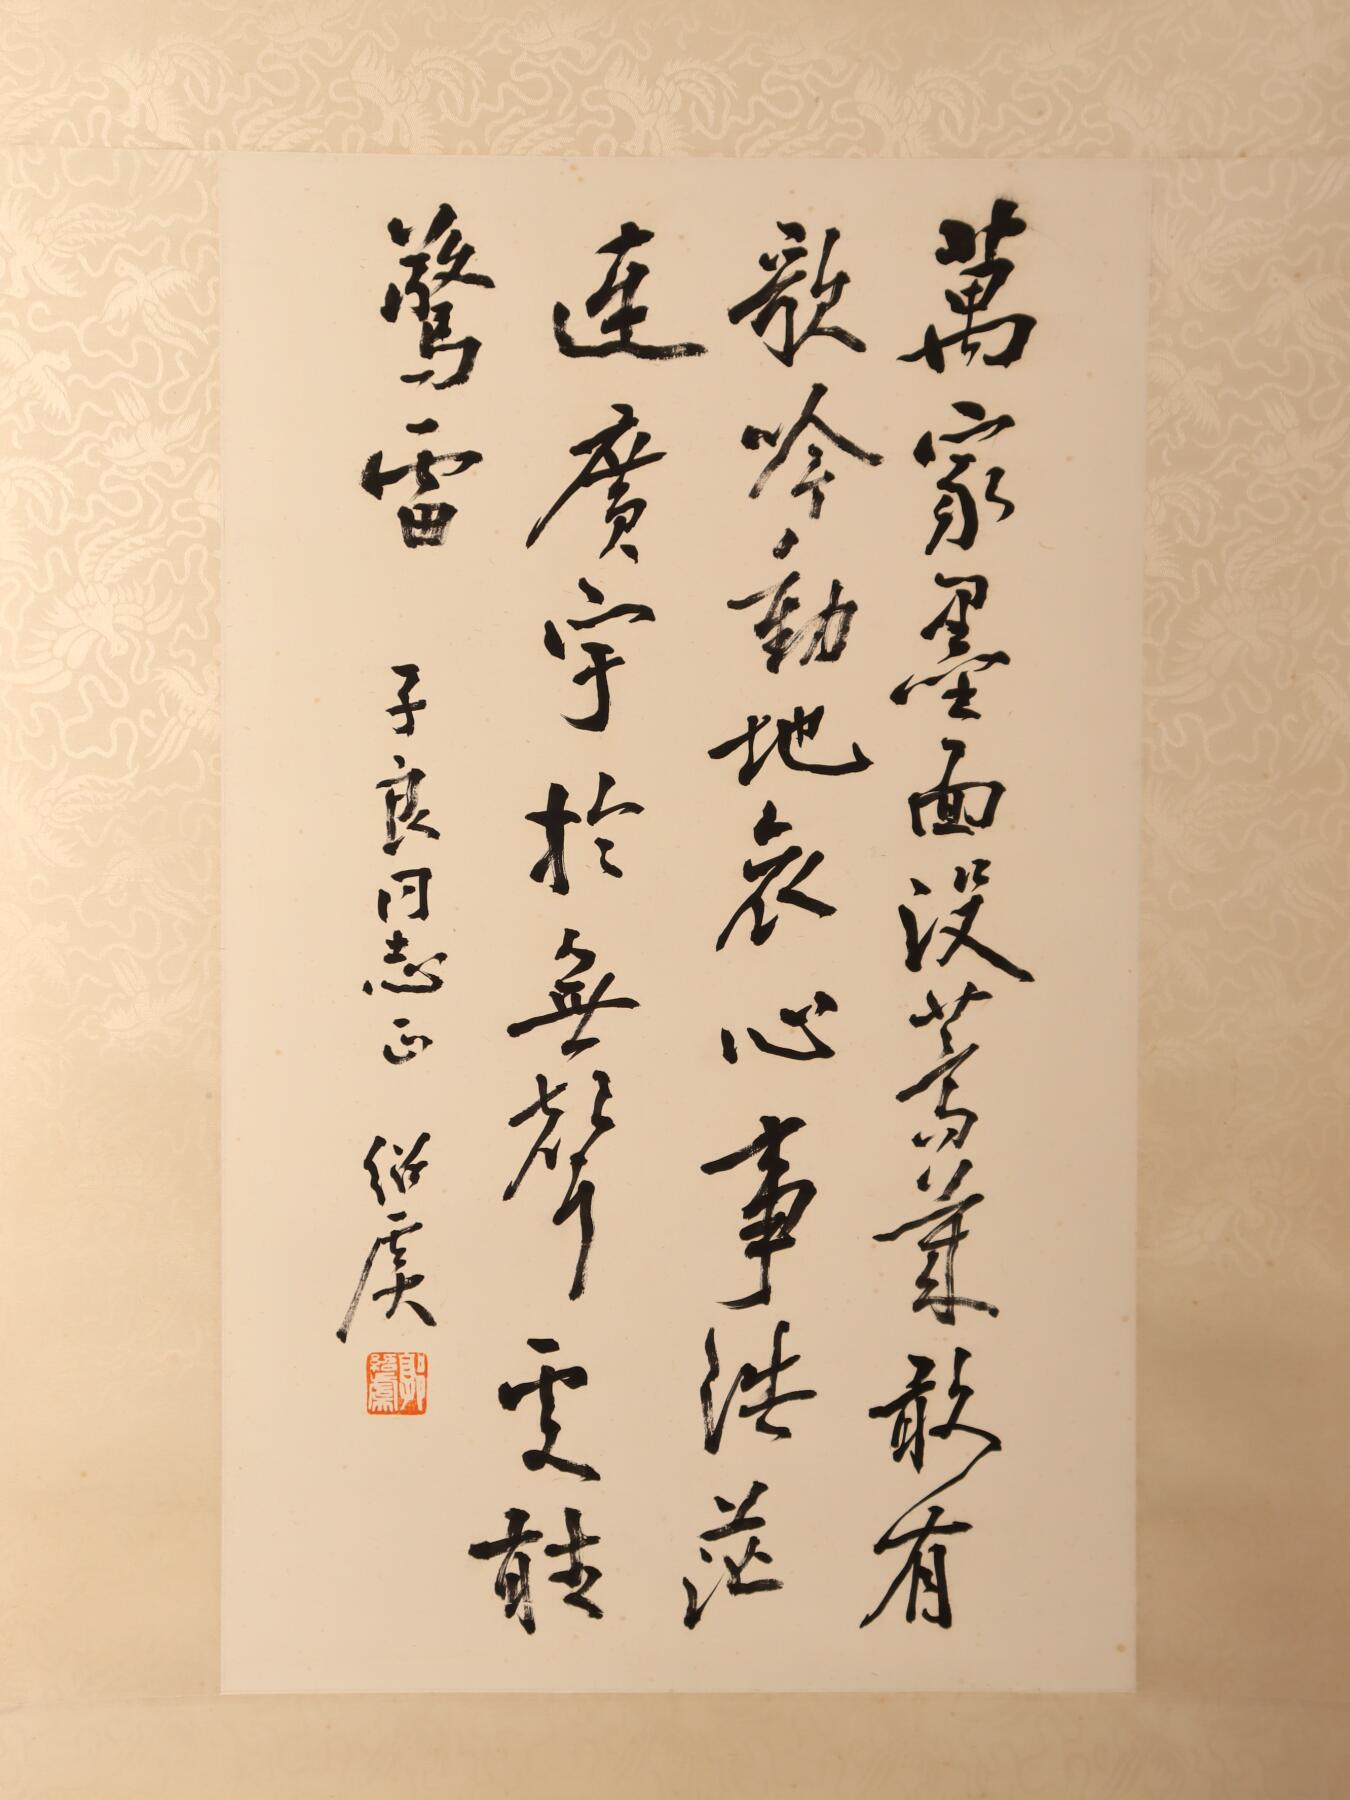 萬家墨面没蒿萊敢有
歌吟動地哀心事浩茫
連廣宇於無聲處聽
驚雷 子良同志正 紹虞
郭紹虞